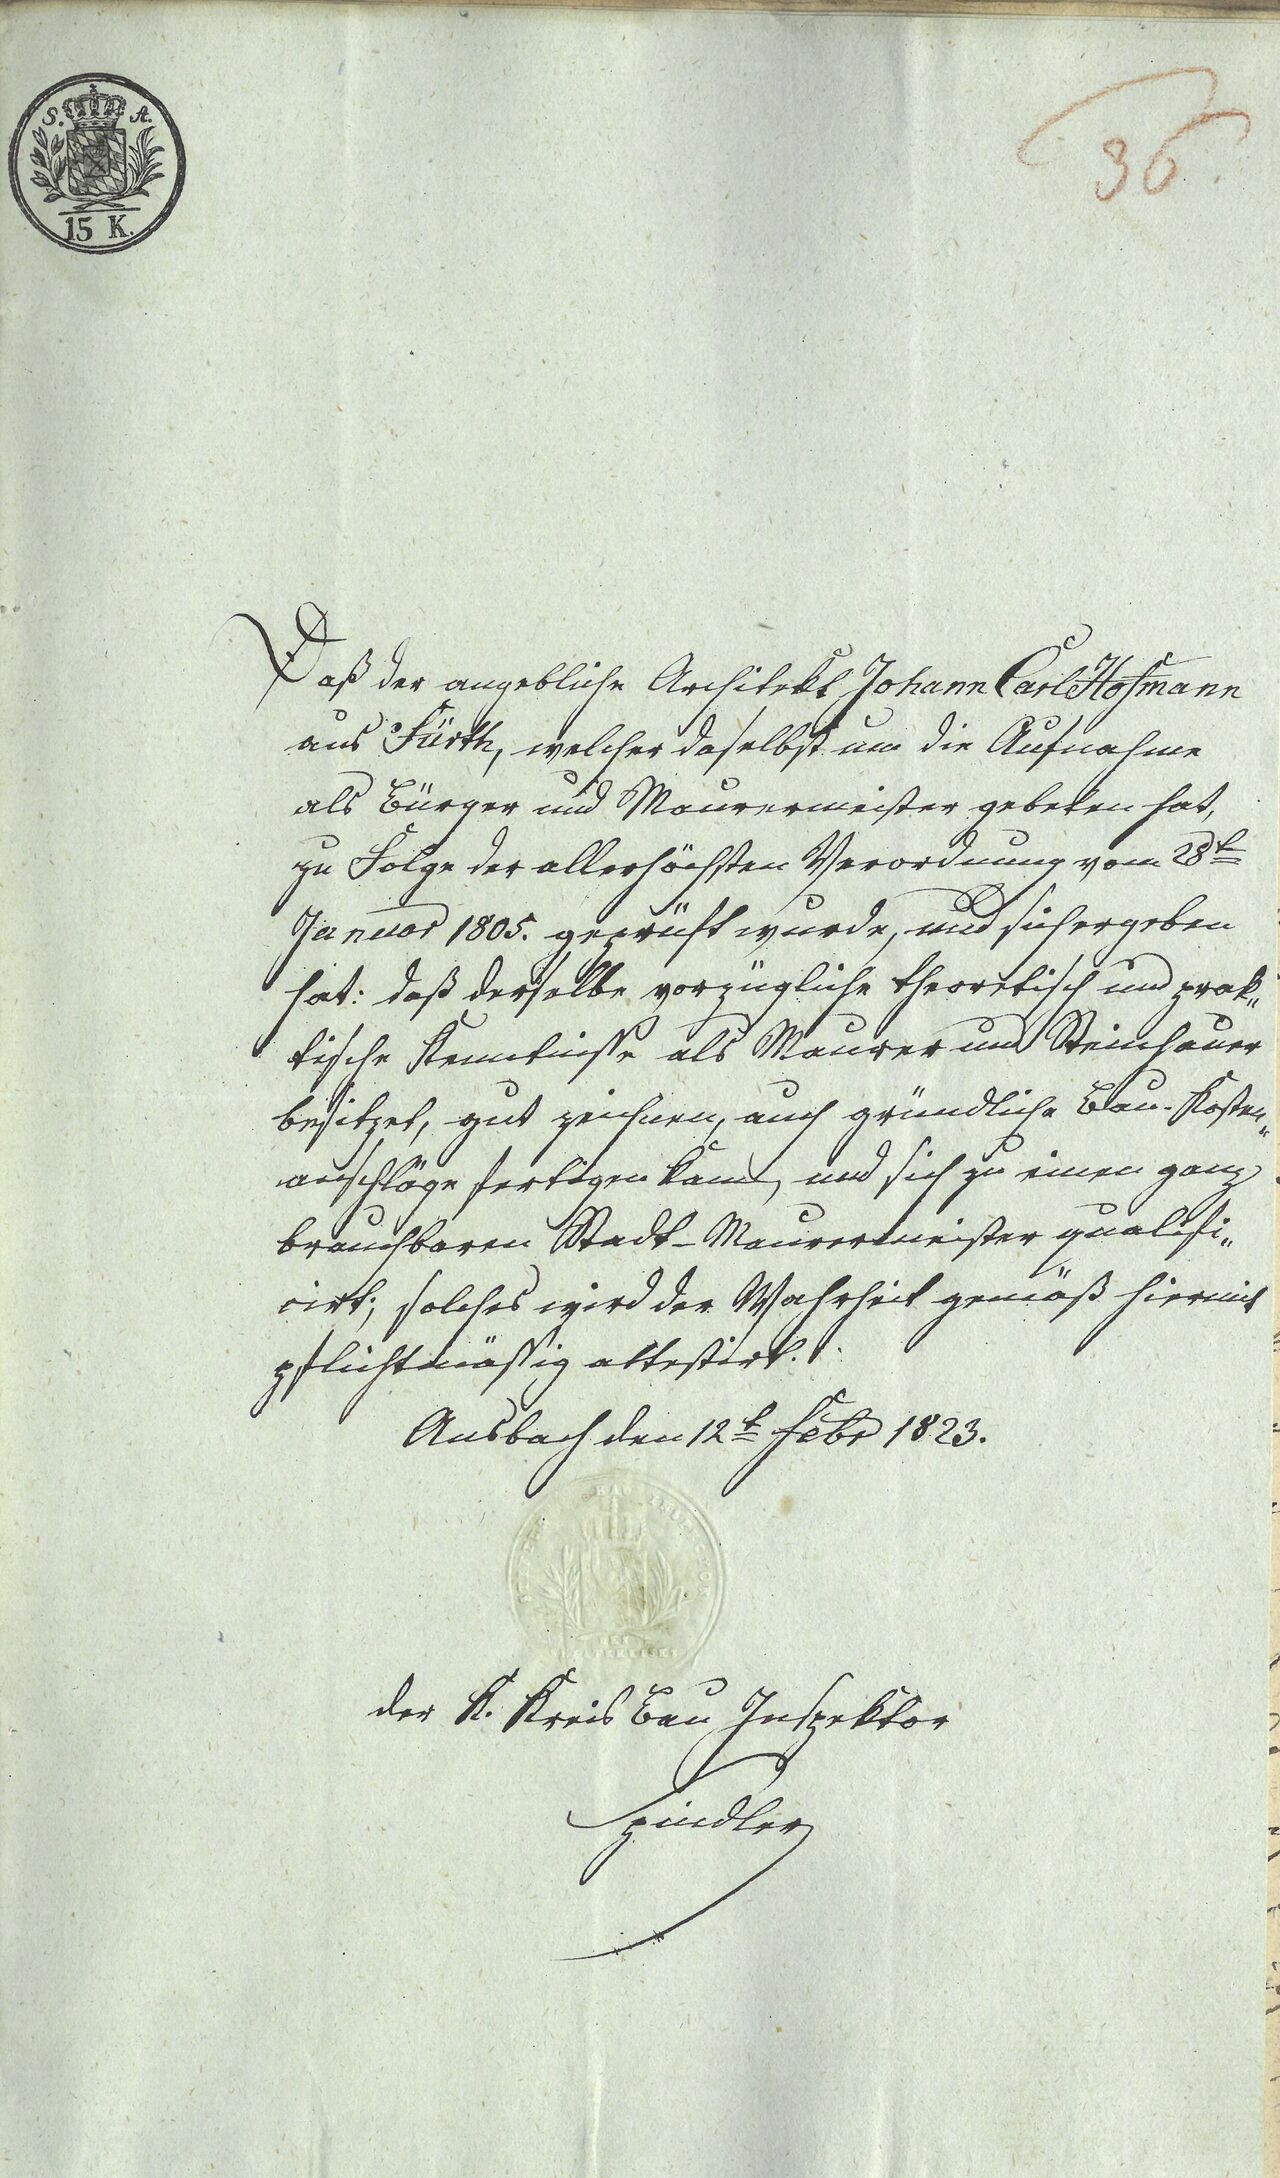 S. A.
15 K.
36
Daß der angebliche Architekt Johann Carl Hofmann
aus Fürth, welcher daselbst um die Aufnahme
als Bürger und Maurermeister gebeten hat,
zu Folge der allerhöchsten Verordnung vom 28t
Januar 1805. geprüft wurde, und sich ergeben
hat: daß derselbe vorzügliche theoretisch und prak„
tische Kenntnisse als Maurer und Steinhauer
besitzet, gut zeichnen, auch gründliche Bau-Kosten„
anschläge fertigen kann, und sich zu einen ganz
brauchbaren Stadt-Maurermeister qualifi„
cirt; solches wird der Wahrheit gemäß hiermit
pflichtmäßig attestirt.
Ansbach den 12t Febr 1823.
der K. Kreis Bau Inspektor
Spindler